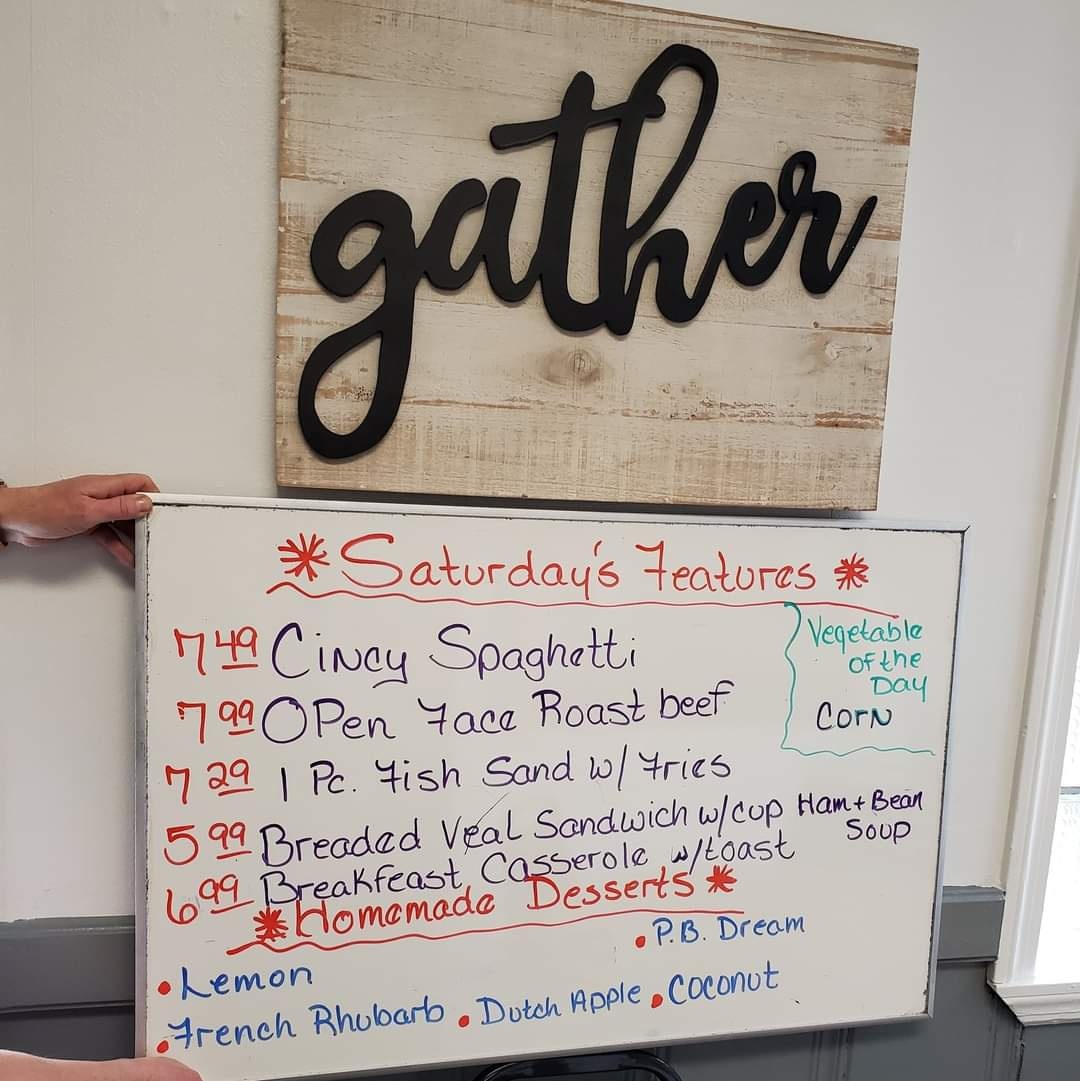 gather
Saturday's Features
7 49 Cincy Spaghetti
7 99 Open Face Roast beef
7 29 1 Pc. Fish Sand w/ Fries
5 99 Breaded Veal Sandwich w/cup Ham + Bean
Soup
6 99 Breakfeast Casserole w/toast
Vegetable
of the
Day
Corn
Homemade Desserts
• P.B. Dream
• Lemon
• French Rhubarb • Dutch Apple • Coconut